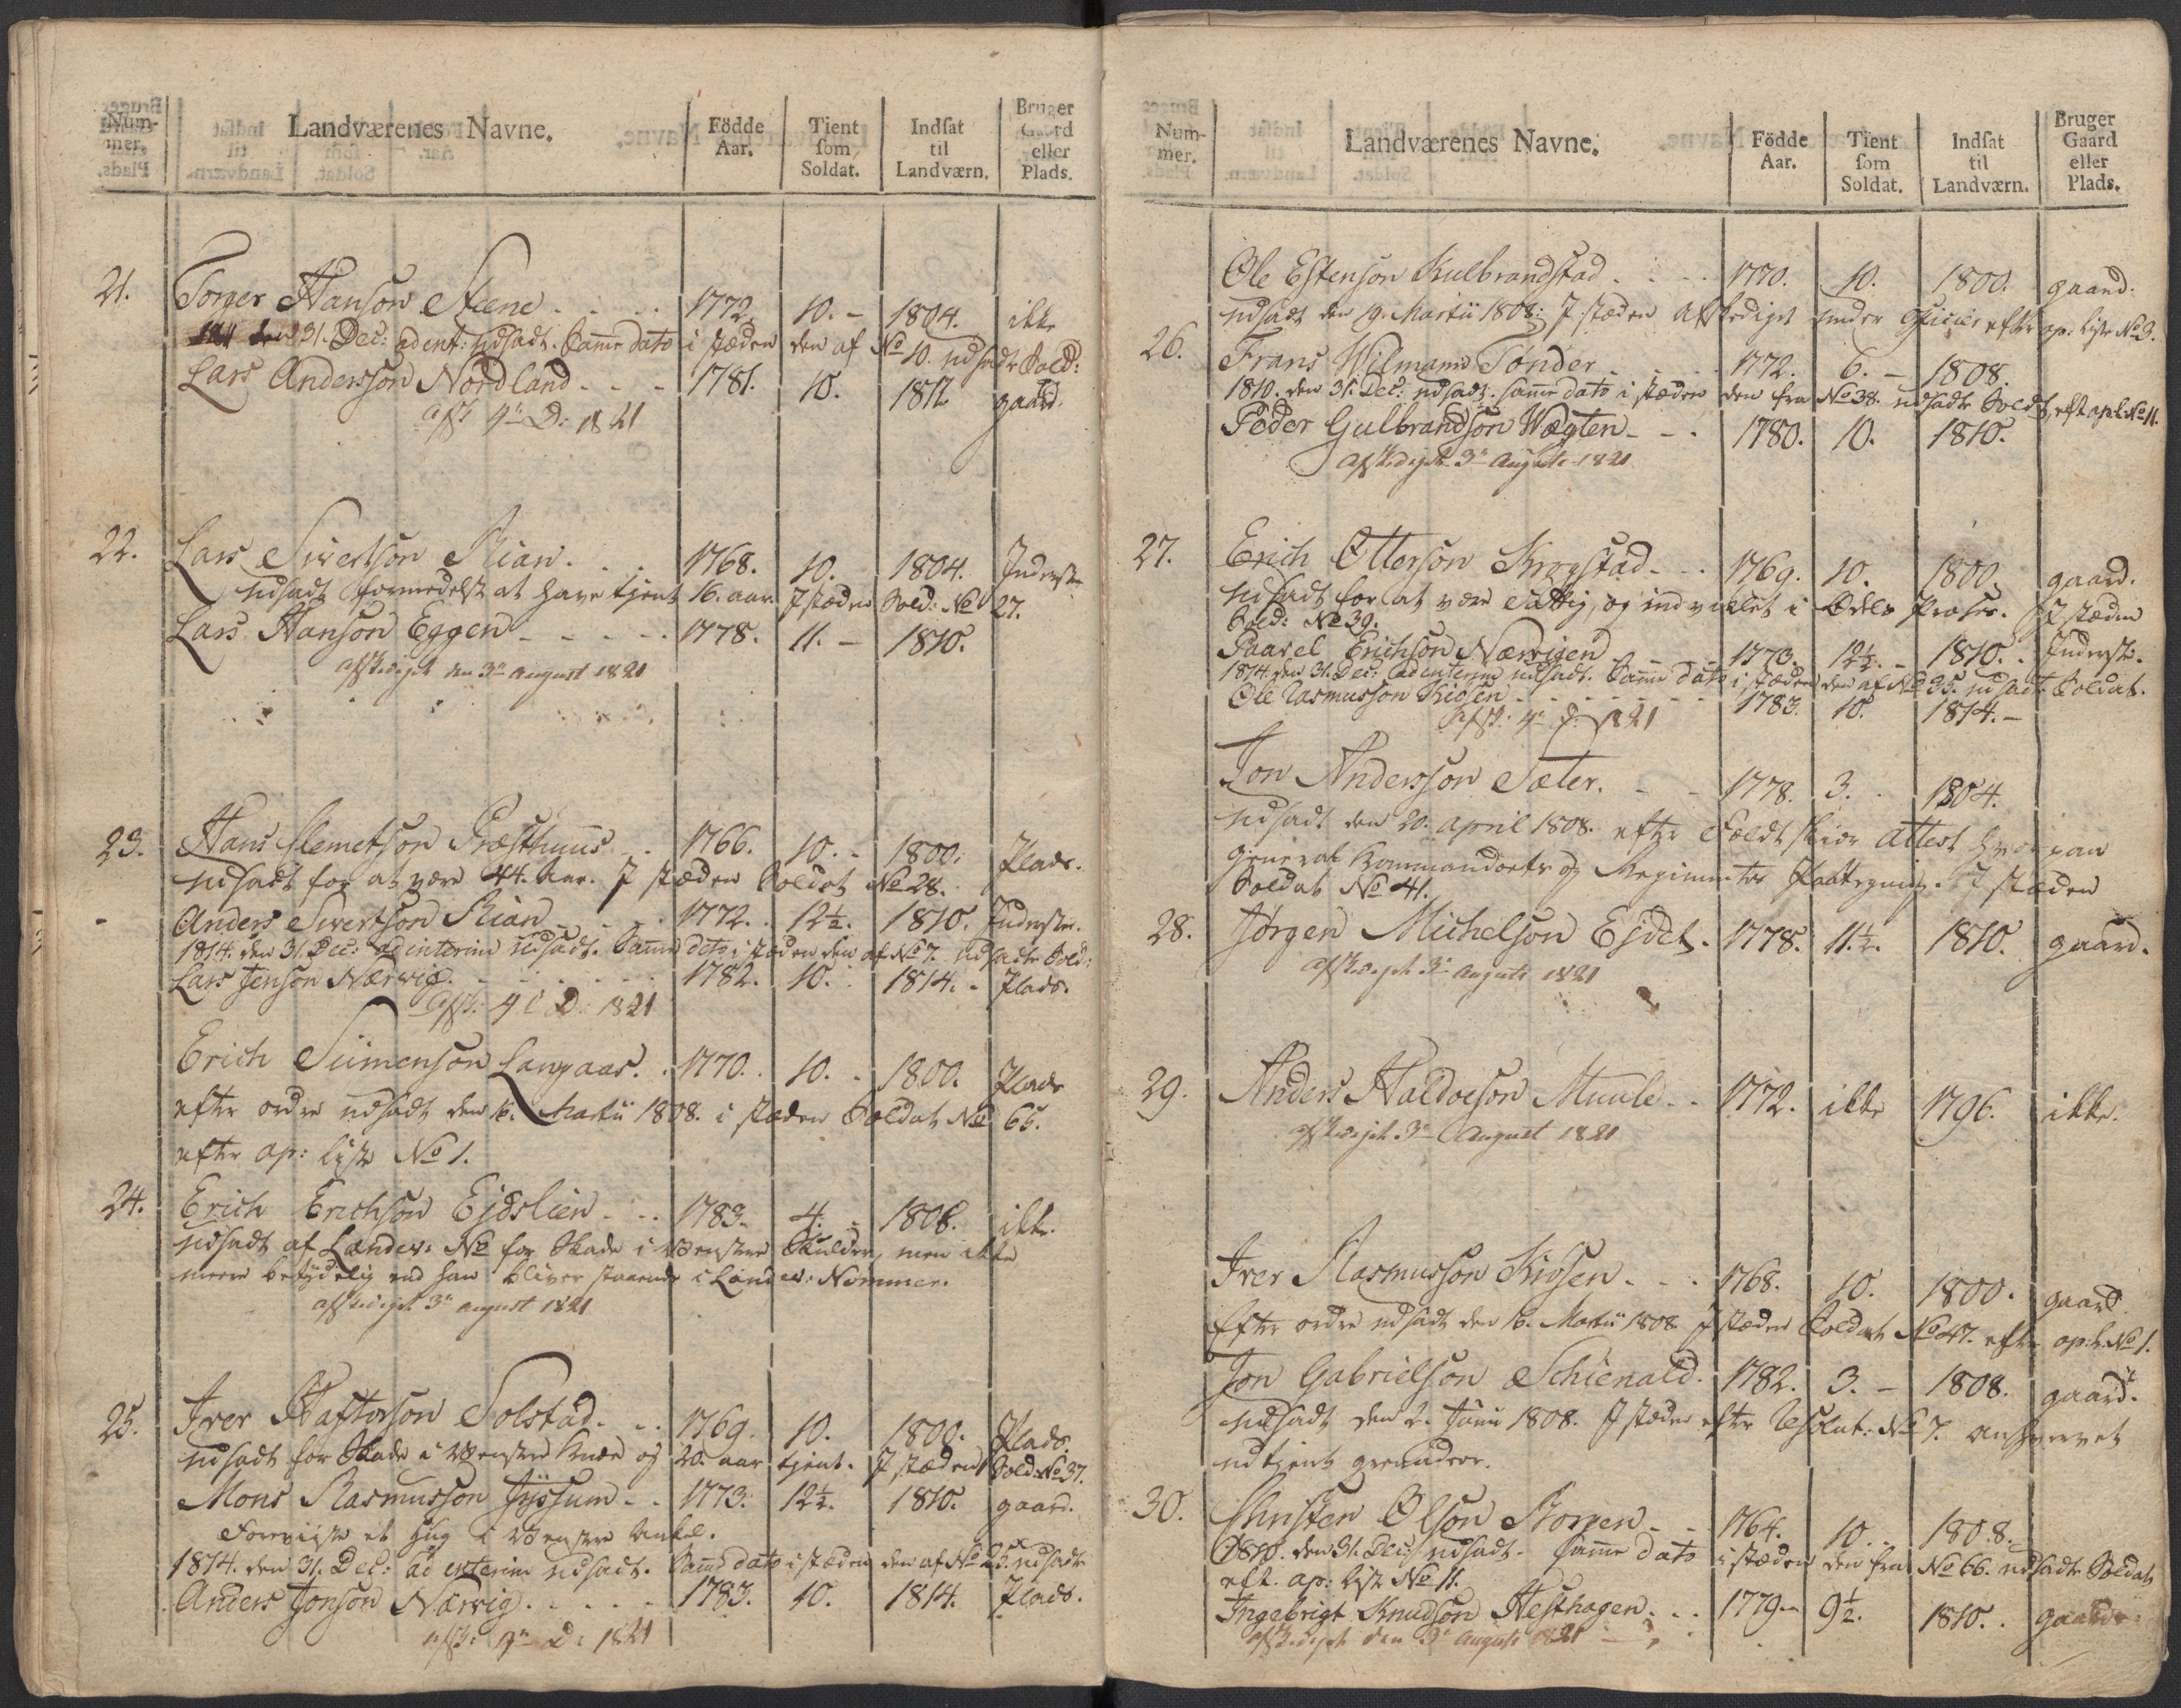 Num-
mer.
Landværenes Navne.
Födde
Aar.
Tient
som
Soldat.
Indsat
til
Landværn.
Bruger
Gaard
eller
Plads.
21. Torger Hanson Steene 1772. 10. 1804. ikke
den 31. Dec: ad ent: udsadt. Samme dato i stæden den af No 10. udsadte Sold:
Lars Andersson Nordland 1781. 10. 1812 gaard.
afsk 4n D: 1821
22. Lars Sivertson Rian. 1768. 10. 1804. Inderste
udsadt formedelst at have tjent 16. aar. I stæden Sold: No 27.
Lars Hanson Eggen 1778. 11. 1810.
afskediget den 3n August 1821
23. Hans Clemetson Præsthuus 1766. 10. 1800. Plads.
udsadt for at være 44. Aar. I stæden Soldat No 28.
Anders Sivertson Rian 1772. 12½. 1810. Inderste.
1814. den 31. Dec: ad interim udsadt. Samme dato i stæden den af No 7. udsadte Sold:
Lars Jenson Nærvig. 1782. 10. 1814. Plads.
afsk: 4 D: 1821
Erich Siimenson Langaas. 1770. 10. 1800. Plads
efter ordre udsadt den 16. Martii 1808. i stæden Soldat No 65.
efter ap: liste No 1.
24. Erich Erichson Ejdslien 1783. 4. 1808. ikke.
udsadt af Landev: No for Skade i venstre Skulder, men ikke
meere betydelig end han bliver staaende i Landev: Nommer.
afskediget 3n august 1821
25. Iver Haftorson Solstad. 1769. 10. 1800. Plads.
udsadt for Skade i venstre Knæe og 20. aar tjent. I stæden Sold: No 37.
Mons Rasmusson Jyssum 1773. 12½. 1810. gaard.
Foreviiste et Hug i venstre Ankel.
1814. den 31. Dec: ad enterim udsadt. Samme dato i stæden den af No 25. udsadte
Anders Jonson Nærvig. 1783. 10. 1814. Plads.
afsk: 4n D: 1821
Num-
mer.
Landværenes Navne.
Födde
Aar.
Tient
som
Soldat.
Indsat
til
Landværn.
Bruger
Gaard
eller
Plads.
Ole Estenson Kulbrandstad 1770. 10. 1800. gaard.
udsadt den 19. Martii 1808. I stæden Afskediget under Officier efter ap: liste No 3.
26. Frans Wilmann Tønder 1772. 6. 1808.
1810. den 31. Dec: udsadt. samme dato i stæden den fra No 38. udsadte Soldt, eft ap: l: No 11.
Peder Gulbrandson Wegten 1780. 10. 1810.
afskediget 3n August 1821
27. Erich Otterson Krogstad 1769. 10. 1800. gaard.
udsadt for at være fattig, og indviklet i Odels Proses. I stæden
Sold: No 39.
Paavel Erichson Nærvigen 1773. 12½. 1810. Inderste.
1814. den 31. Dec: ad enterim udsadt. Samme dato i stæden den af No 35. udsadte Soldat.
Ole Rasmusson Kiosen 1783. 10. 1814.
afsk: 4n D: 1821
Jon Andersson Sæter. 1778. 3. 1804.
udsadt den 20. april 1808. efter Feldtskier Attest hvorpaa
General Kommandoets og Regimentes Paategning. I stæden
Soldat No 41.
28. Jørgen Michelson Ejdet. 1778. 11.½. 1810. gaard.
afskediget 3n August 1821
29. Anders Haldorson Muule 1772. ikke 1796. ikke.
afskediget 3n August 1821
Iver Rasmusson Kiosen 1768. 10. 1800. gaard
Efter ordre udsadt den 16. Martii 1808 I stæden Soldat No 47. efter ap: l: No 1.
Jon Gabrielson Schienald. 1782. 3. 1808. gaard.
udsadt den 2. Junii 1808. I stæden efter Resolut: No 7. anhvervet
udtjent grenader.
30. Christen Olson Borgen 1764. 10. 1808.
1810. den 31. Dec: udsadt. samme dato i stæden den fra No 66. udsadte Soldat
eft. ap: liste No 11.
Ingebrigt Knudson Hesthagen. 1779. 9½. 1810. gaard
afskediget den 3n August 1821